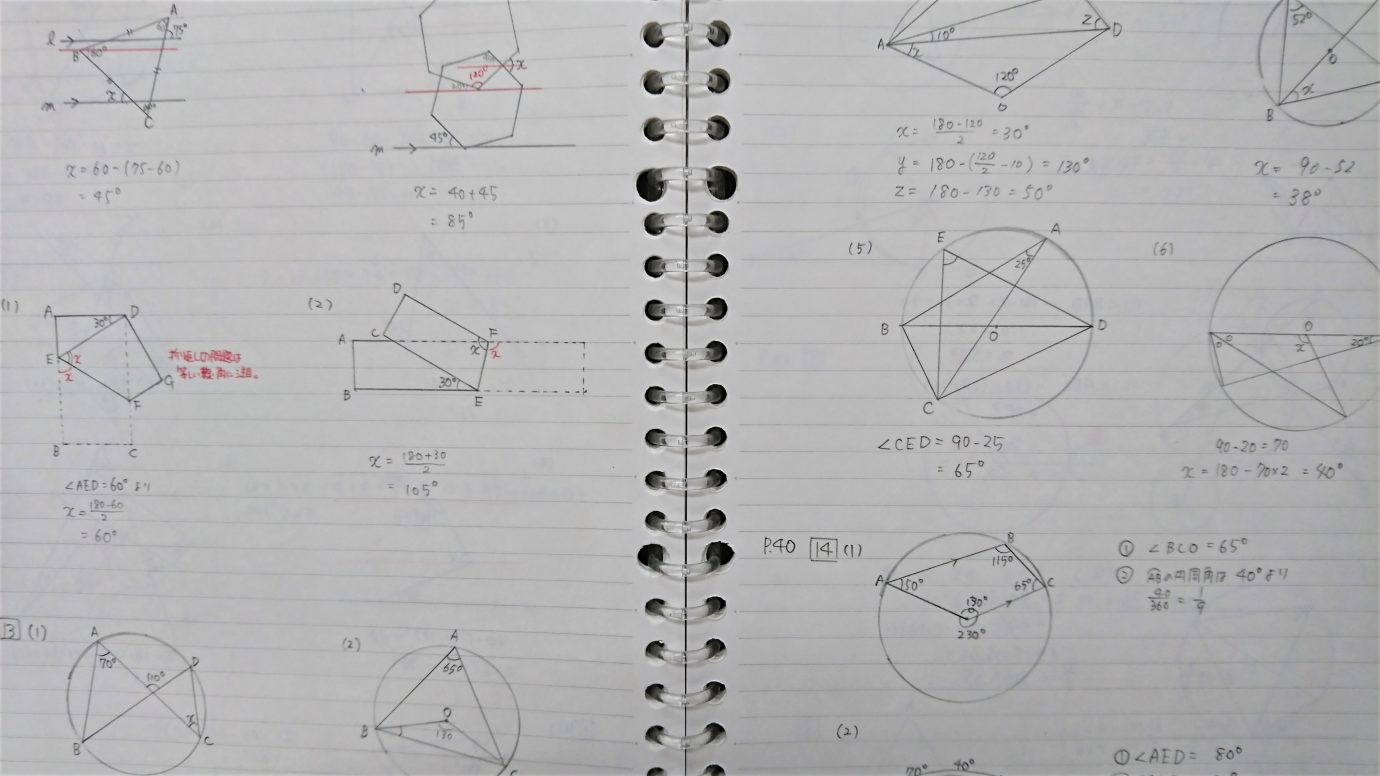 A
75°
l
B
80°
x
m
C
x=60-(75-60)
=45°
120°
x
45°
m
x= 40+45
= 85°
(1)
A
D
30°
E
x
x
G
F
B
C
折り返しの問題は
等しい
∠AED=60°より
x=180-60/2
=60°
(2)
D
A
C
F
x
x
30°
B
E
x= 180+30/2
= 105°
(1)
A
D
70°
110°
x
B
C
(2)
A
65°
O
130
B
C
A
10°
z
D
x
120°
O
x= 180-120/2 =30°
y= 180-(120/2-10) = 130°
z= 180-130=50°
52°
O
x
B
x= 90-52
= 38°
(5)
E
A
25°
B
O
D
C
∠CED= 90-25
= 65°
(6)
O
x
20°
90-20=70
x=180-70×2 =40°
P.40 14 (1)
B
115°
A
50°
65°
C
230°
① ∠BCO=65°
② の円周角は 40°より
40/360=1/9
(2)
70°
40°
①∠AED= 80°